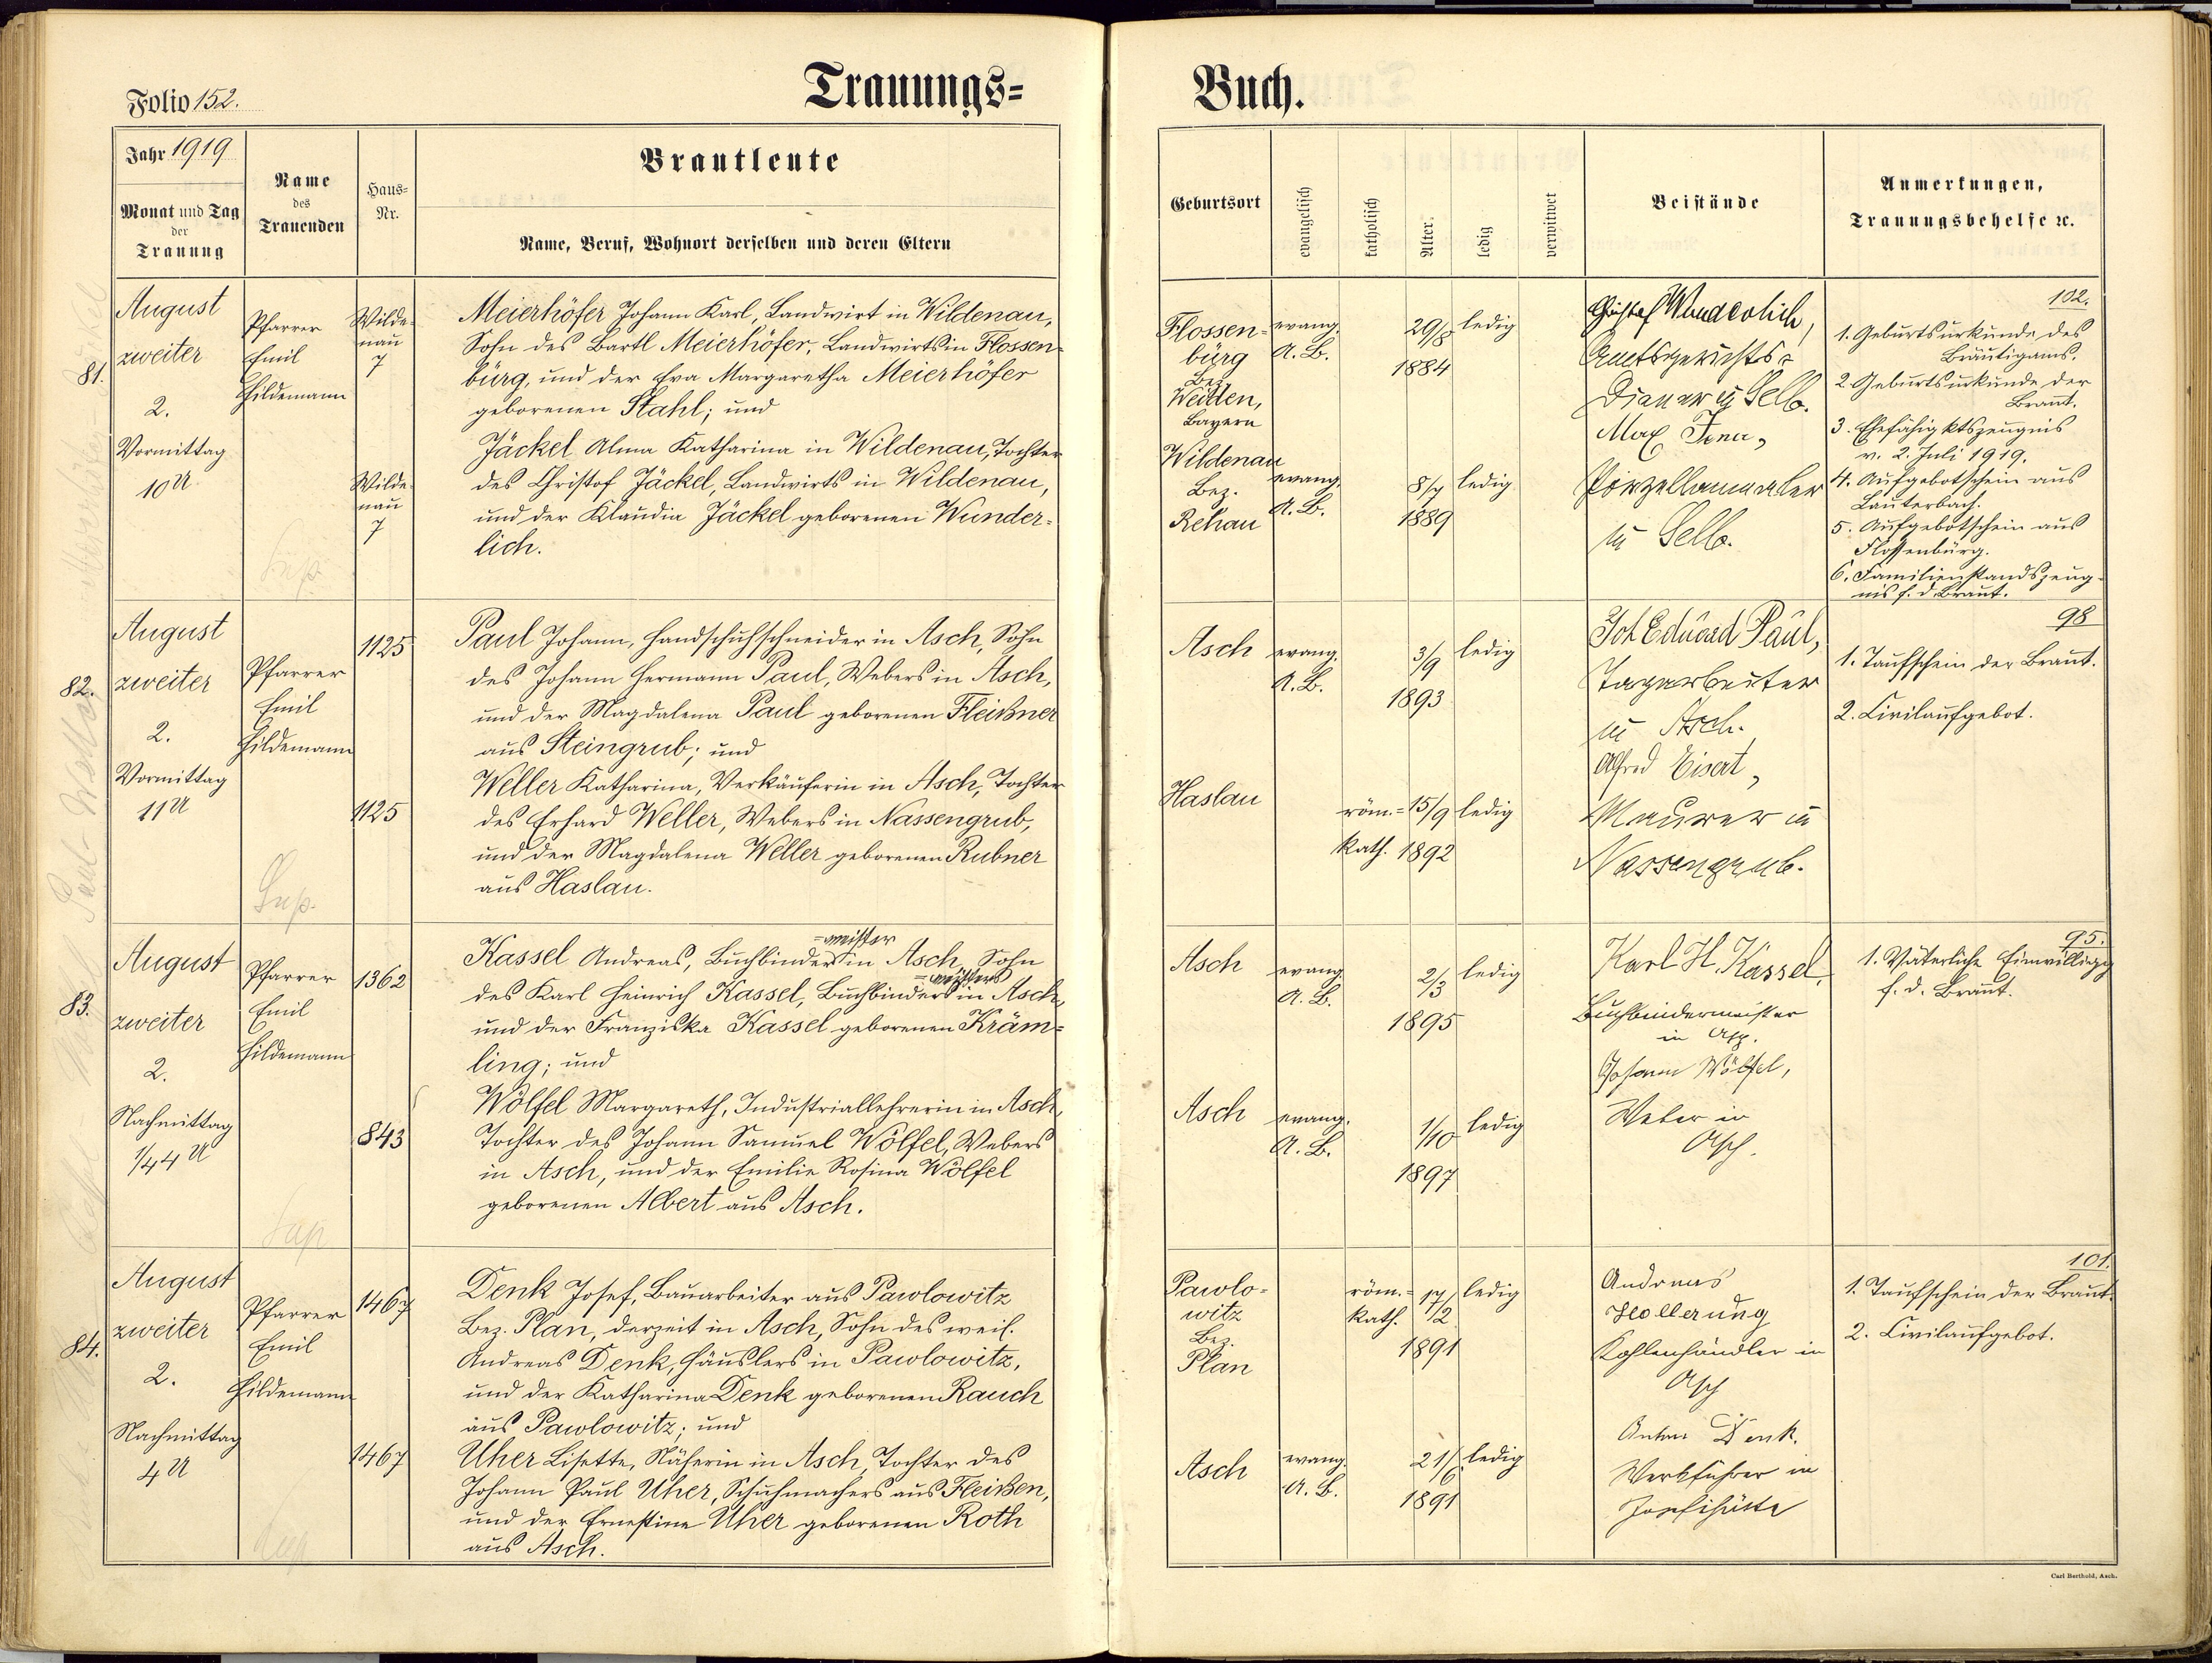 Trauungs=
Buch.
Folio 152.
Jahr 1919
Monat und Tag
der
Trauung
Name
des
Trauenden
Haus=
Nr.
Brautleute
Name, Beruf, Wohnort derselben und deren Eltern
Geburtsort
evangelisch
katholisch
Alter.
ledig
verwitwet
Beistände
Anmerkungen,
Trauungsbehelfe ꝛc.
81.
August
zweiter
2.
Vormittag
10 U
Pfarrer
Emil
Hildemann
Wilde-
nau
7
Wilde-
nau
7
Meierhöfer Johann Karl, Landwirt in Wildenau,
Sohn des Bartl Meierhöfer, Landwirts in Flossen-
bürg, und der Eva Margaretha Meierhöfer
geborenen Stahl; und
Jäckel Alma Katharina in Wildenau, Tochter
des Christof Jäckel, Landwirts in Wildenau,
und der Klaudia Jäckel geborenen Wunder-
lich.
Flossen-
bürg
Bez.
Weiden,
Bayern
evang.
A. B.
29/8
1884
ledig
Wildenau
Bez.
Rehau
evang.
A. B.
8/7
1889
ledig
Wunderlich,
Amtsgerichts-
Diener in Selb.
Max
Porzellanmaler
in Selb.
102.
1. Geburtsurkunde des
Bräutigams.
2. Geburtsurkunde der
Braut.
3. Ehefähigktszeugnis
v. 2. Juli 1919.
4. Aufgebotschein aus
Lauterbach.
5. Aufgebotschein aus
Flossenbürg.
6. Familienstandszeug-
nis f. d. Braut.
82.
August
zweiter
2.
Vormittag
11 U
Pfarrer
Emil
Hildemann
1125
1125
Paul Johann, Handschuhschneider in Asch, Sohn
des Johann Hermann Paul, Webers in Asch,
und der Magdalena Paul geborenen Fleißner
aus Steingrub; und
Weller Katharina, Verkäuferin in Asch, Tochter
des Erhard Weller, Webers in Nassengrub,
und der Magdalena Weller geborenen Rubner
aus Haslau.
Asch
evang.
A. B.
3/9
1893
ledig
Haslau
röm.=
kath.
15/9
1892
ledig
Joh Eduard Paul,
Tagarbeiter
in Asch.
Alfred Eisert,
Maurer in
Nassengrub.
98
1. Taufschein der Braut.
2. Civilaufgebot.
83.
August
zweiter
2.
Nachmittag
1/4 4 U
Pfarrer
Emil
Hildemann
1362
843
=meister
Kassel Andreas, Buchbinder in Asch, Sohn
=meisters
des Karl Heinrich Kassel, Buchbinders in Asch,
und der Franziska Kassel geborenen Kräm=
ling; und
Wölfel Margareth, Industriallehrerin in Asch,
Tochter des Johann Samuel Wölfel, Webers
in Asch, und der Emilie Rosina Wölfel
geborenen Albert aus Asch.
Asch
evang.
A. B.
2/3
1895
ledig
Asch
evang.
A. B.
1/10
1897
ledig
Karl H. Kassel,
Buchbindermeister
in Asch.
Johann Wölfel,
Weber in
Asch.
95.
1. Väterliche Einwilligg
f. d. Braut.
84.
August
zweiter
2.
Nachmittag
4 U
Pfarrer
Emil
Hildemann
1467
1467
Denk Josef, Bauarbeiter aus Pawlowitz
Bez. Plan, derzeit in Asch, Sohn des weil.
Andreas Denk, Häuslers in Pawlowitz,
und der Katharina Denk geborenen Rauch
aus Pawlowitz; und
Uher Lisette, Näherin in Asch, Tochter des
Johann Paul Uher, Schuhmachers aus Fleißen,
und der Ernestine Uher geborenen Roth
aus Asch.
Pawlo-
witz
Bez.
Plan
röm.=
kath.
17/2
1891
ledig
Asch
evang.
A. B.
21/6
1891
ledig
Andreas
Hollerung
Kohlenhändler in
Asch
Anton Denk.
Werkführer in
Josefihütte
101.
1. Taufschein der Braut.
2. Civilaufgebot.
Carl Berthold, Asch.